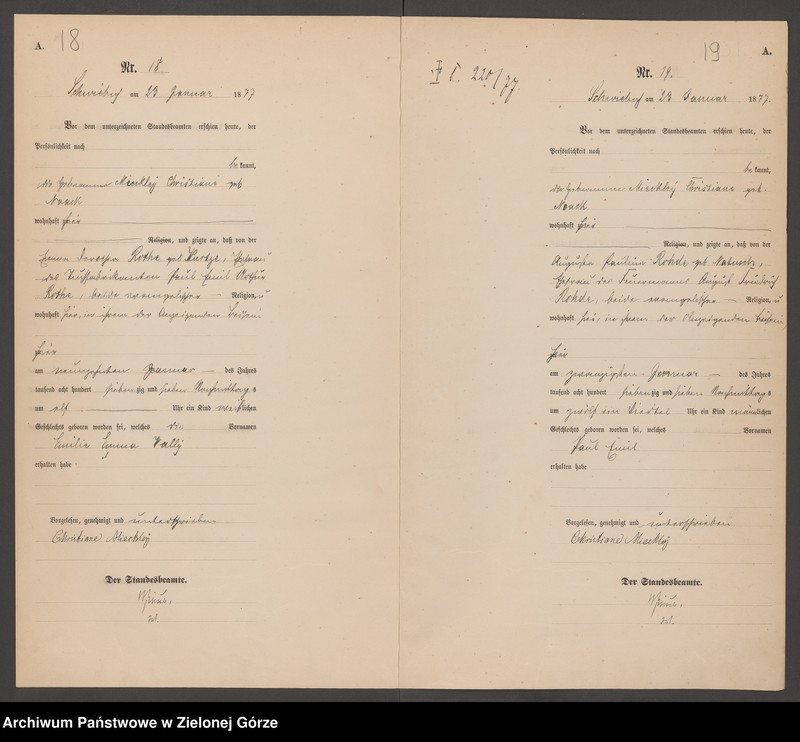 A. 18
Nr. 18
Schwiebus am 23 Januar 1877
Vor dem unterzeichneten Standesbeamten erschien heute, der
Persönlichkeit nach
bekannt,
die Hebamme Mieckley Christiane geb
Noack
wohnhaft hier
Religion, und zeigte an, daß von der
Emma Dorothea Rothe geb Kurtze, Ehefrau
des Tuchfabrikanten Paul Emil Arthur
Rothe, beide evangelischer Religion, u
wohnhaft hier, in ihrem der Anzeigenden Beisein
hier
am neunzehnten Januar des Jahres
tausend acht hundert siebenzig und sieben Vormittags
um elf Uhr ein Kind weiblichen
Geschlechts geboren worden sei, welches den Vornamen
Emilie Emma Vally
erhalten habe
Vorgelesen, genehmigt und unterschrieben
Christiane Mieckley
Der Standesbeamte.
19 A.
220/77.
Nr. 19.
Schwiebus am 23 Januar 1877
Vor dem unterzeichneten Standesbeamten erschien heute, der
Persönlichkeit nach
bekannt,
die Hebamme Mieckley Christiane geb.
Noack
wohnhaft hier
Religion, und zeigte an, daß von der
Auguste Pauline Rohde geb Natusch,
Ehefrau des Feuermanns August Friedrich
Rohde, beide evangelischer Religion, u
wohnhaft hier, in ihrem der Anzeigenden Beisein
hier
am zwanzigsten Januar des Jahres
tausend acht hundert siebenzig und sieben Vormittags
um zwölf ein Viertel Uhr ein Kind männlichen
Geschlechts geboren worden sei, welches Vornamen
Paul Emil
erhalten habe
Vorgelesen, genehmigt und unterschrieben
Christiane Mieckley
Der Standesbeamte.
Archiwum Państwowe w Zielonej Górze